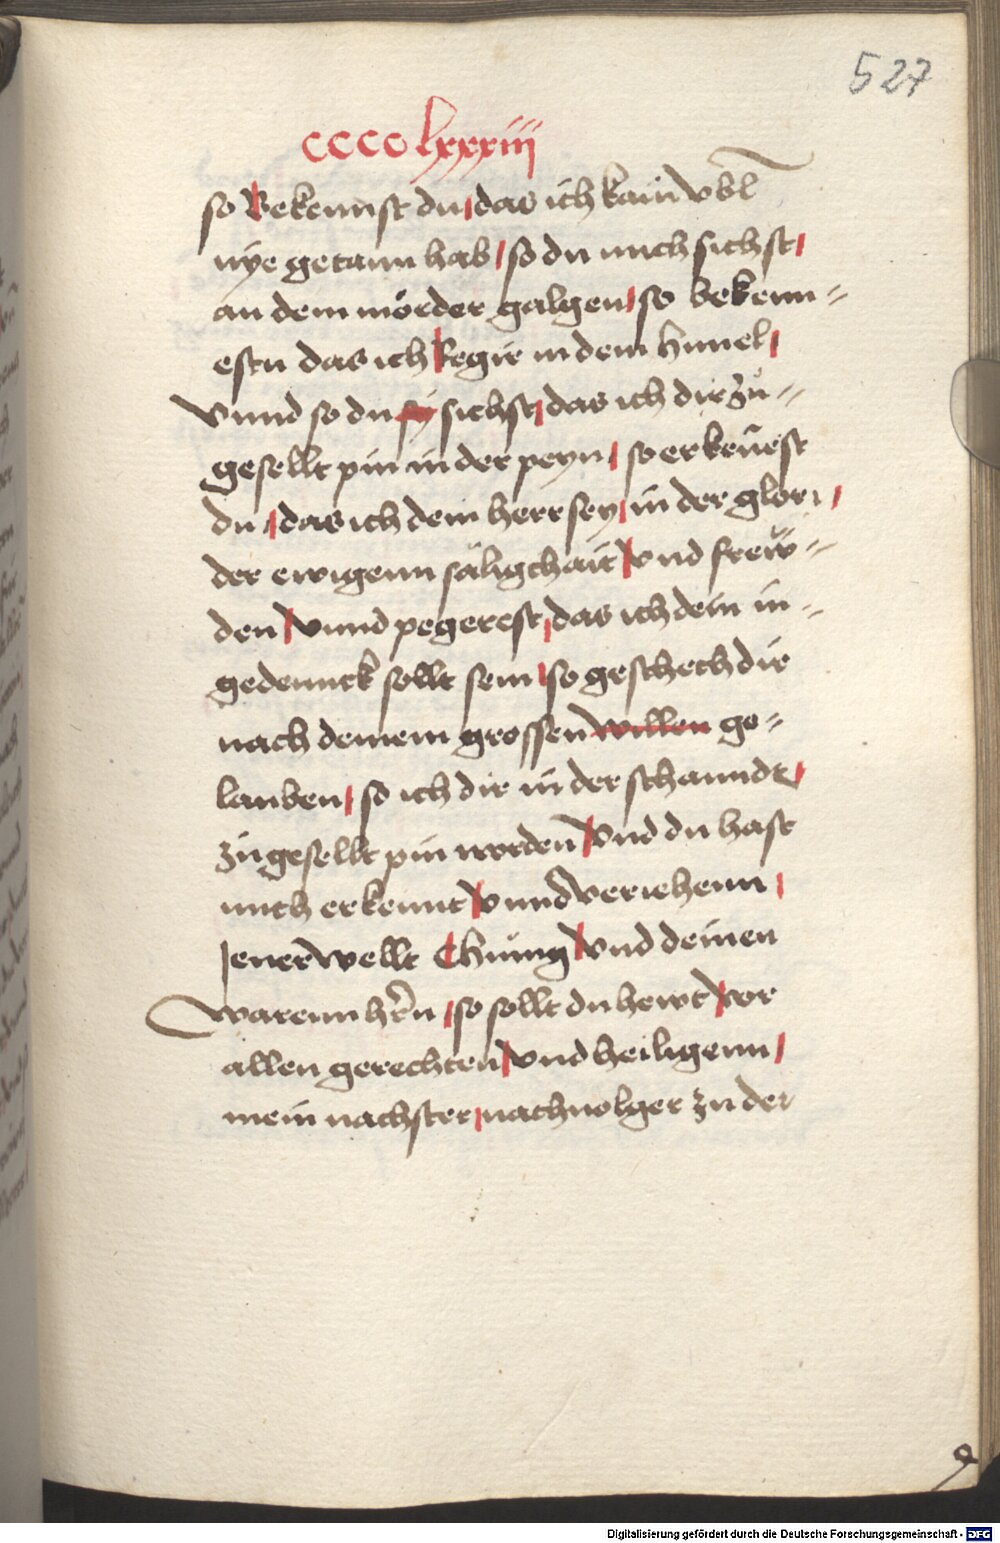 527
cccclxxxiii
so Bekennst du das ich kain vbl
nye getann hab / so du mich sichst /
an dem mörder galgen / so bekenn=
estu das ich Regir in dem himel /
vnnd so du sy sichst / das ich dir zů=
gesellt pin in der peyn / so erkēnest
du / das ich dein herr sey / in der glori /
der ewigenn säligchait / vnd frew=
den / vnnd pegerest / das ich dein in=
gedennck sollt sein / so geschech dir
nach deinem grossen willen ge=
lauben / so ich dir in der schanndt /
zů gesellt pin wordenn / vnd du hast
mich erkennt / vnnd veriehenn /
Jener wellt Chünig / vnd deinen
warenn hr̄n / so sollt du hewt / vor
allen gerechten / vnd heiligenn /
mein nachster / nachuolger zu der
Digitalisierung gefördert durch die Deutsche Forschungsgemeinschaft - DFG